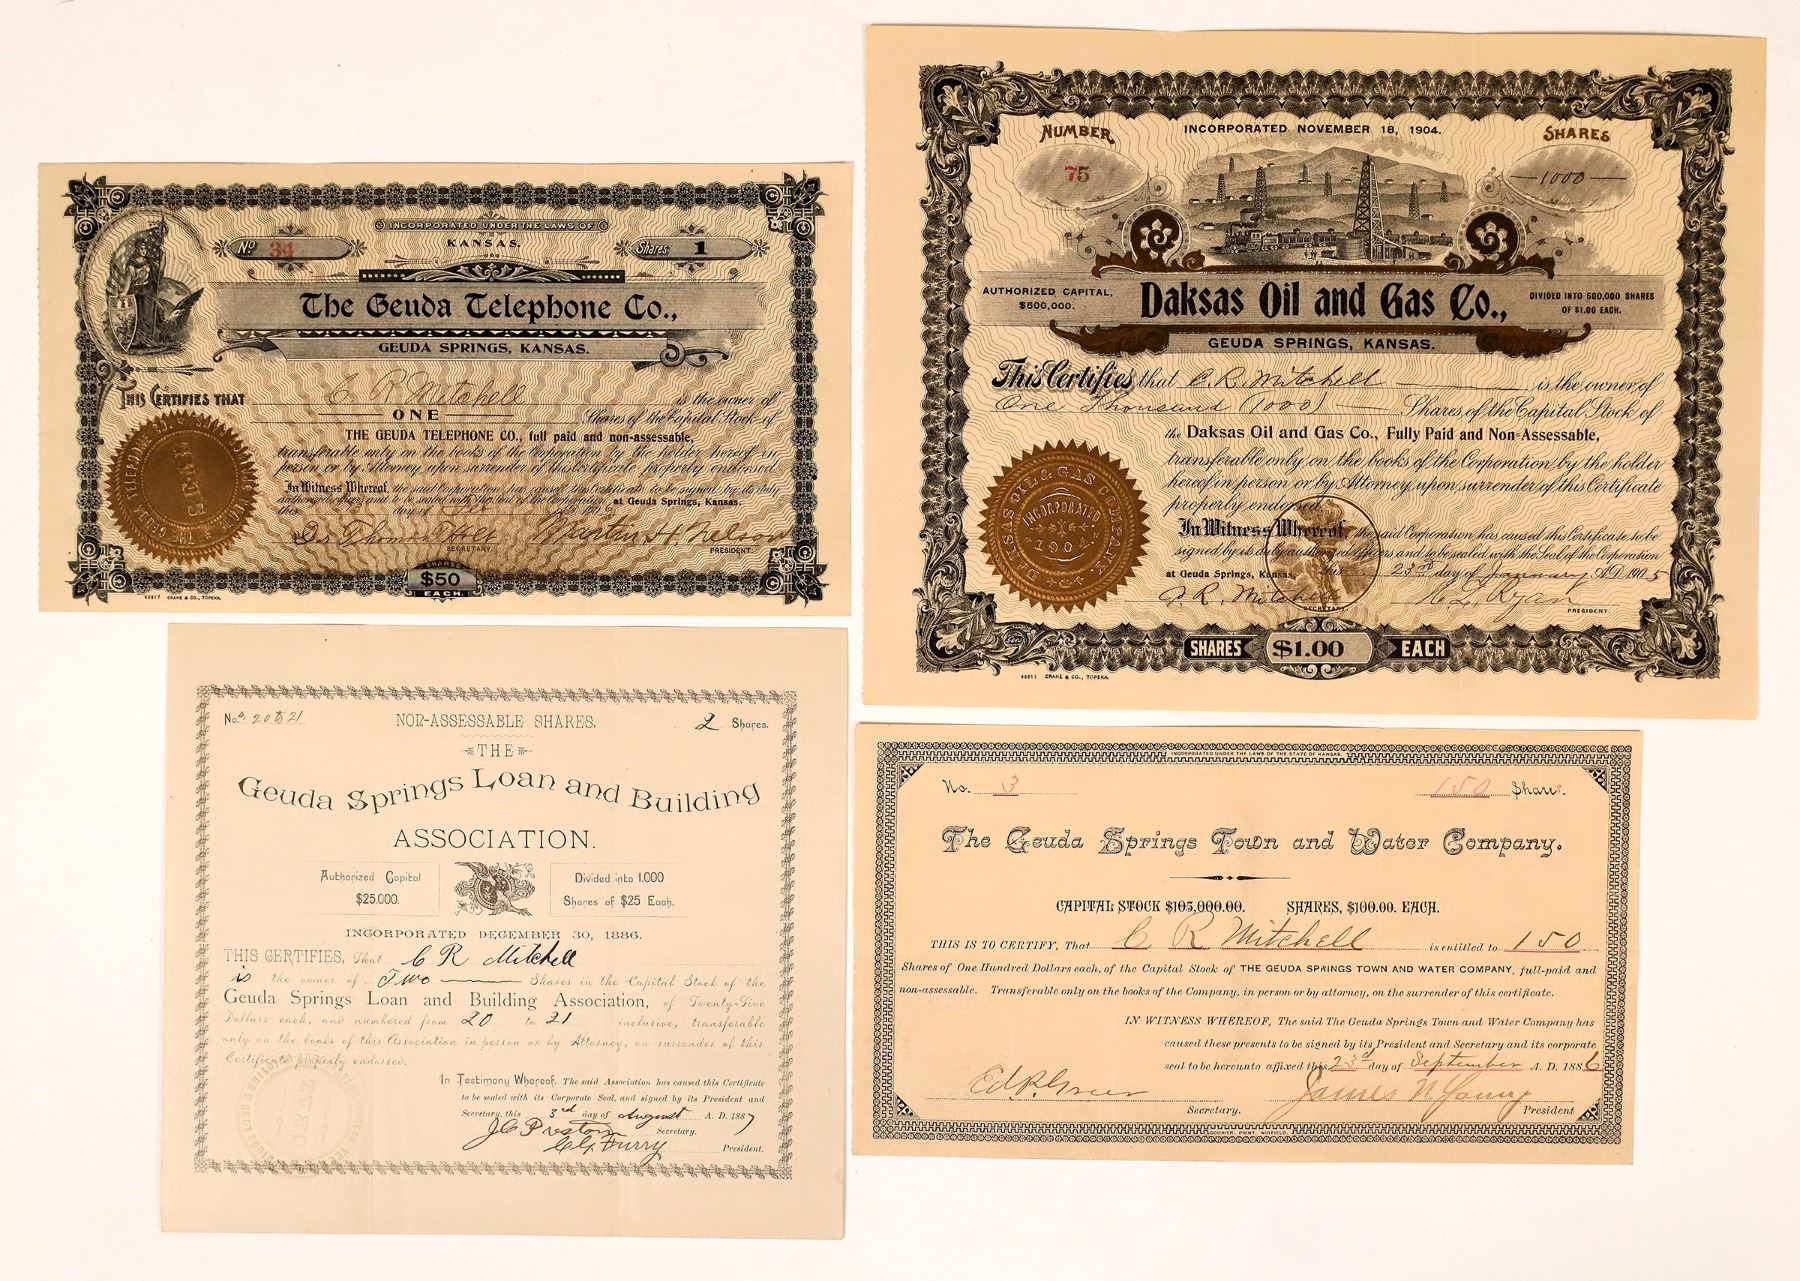 INCORPORATED UNDER THE LAWS OF
KANSAS.
No 34
Shares 1
The Geuda Telephone Co.,
GEUDA SPRINGS, KANSAS.
THIS CERTIFIES THAT C R Mitchell is the owner of
ONE Shares of the Capital Stock of
THE GEUDA TELEPHONE CO., full paid and non-assessable,
transferable only on the books of the Corporation by the holder hereof in
person or by Attorney upon surrender of this Certificate properly endorsed.
In Witness Whereof, the said Corporation has caused this Certificate to be signed by its duly
authorized officers and to be sealed with the Seal of the Corporation at Geuda Springs, Kansas.
this day of
Thomas Holt Martin H. Nelson
SECRETARY. PRESIDENT.
SHARES
$50
EACH.
CRANE & CO., TOPEKA.
NUMBER
75
INCORPORATED NOVEMBER 18, 1904.
SHARES
1000
AUTHORIZED CAPITAL,
$500,000.
Daksas Oil and Gas Co.,
DIVIDED INTO 500,000 SHARES
OF $1.00 EACH.
GEUDA SPRINGS, KANSAS.
This Certifies that C. R. Mitchell is the owner of
One Thousand (1000) Shares of the Capital Stock of
the Daksas Oil and Gas Co., Fully Paid and Non-Assessable,
transferable only on the books of the Corporation by the holder
hereof in person or by Attorney upon surrender of this Certificate
properly endorsed.
In Witness Whereof, the said Corporation has caused this Certificate to be
signed by its duly authorized officers and to be sealed with the Seal of the Corporation
at Geuda Springs, Kansas, this 23rd day of January A.D. 1905
J. R. Mitchell Ryan
SECRETARY. PRESIDENT.
DAKSAS OIL & GAS COMPANY
INCORPORATED
1904
SHARES $1.00 EACH
CRANE & CO., TOPEKA.
Nos. 20 to 21
NON-ASSESSABLE SHARES.
2 Shares.
THE
Geuda Springs Loan and Building
ASSOCIATION.
Authorized Capital
$25,000.
Divided into 1,000
Shares of $25 Each.
INCORPORATED DECEMBER 30, 1886.
THIS CERTIFIES, That C R Mitchell
is the owner of Two Shares in the Capital Stock of the
Geuda Springs Loan and Building Association, of Twenty-Five
Dollars each, and numbered from 20 to 21 inclusive, transferable
only on the books of this Association in person or by Attorney, on surrender of this
Certificate properly endorsed.
In Testimony Whereof, The said Association has caused this Certificate
to be sealed with its Corporate Seal, and signed by its President and
Secretary, this 3rd day of August A. D. 1887
J C Preston Secretary.
President.
INCORPORATED UNDER THE LAWS OF THE STATE OF KANSAS.
No. 3
150 Shares.
The Geuda Springs Town and Water Company.
CAPITAL STOCK $105,000.00. SHARES, $100.00. EACH.
THIS IS TO CERTIFY, That C R Mitchell is entitled to 150
Shares of One Hundred Dollars each, of the Capital Stock of THE GEUDA SPRINGS TOWN AND WATER COMPANY, full-paid and
non-assessable. Transferable only on the books of the Company, in person or by attorney, on the surrender of this certificate.
IN WITNESS WHEREOF, The said The Geuda Springs Town and Water Company has
caused these presents to be signed by its President and Secretary and its corporate
seal to be hereunto affixed this 23rd day of September A. D. 1886
James N. Young
Secretary. President
COURIER PRINT, WINFIELD.